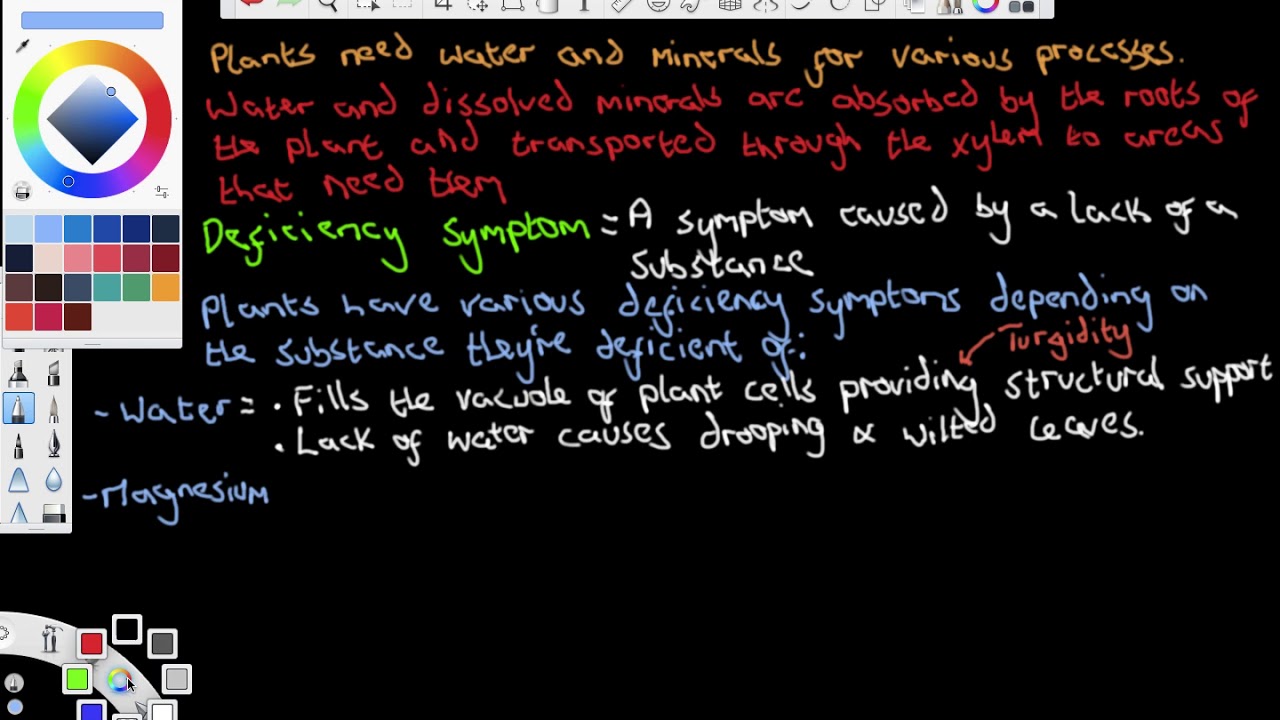 Plants need water and minerals for various processes.
Water and dissolved minerals are absorbed by the roots of
the plant and transported through the xylem to areas
that need them
Deficiency Symptom = A symptom caused by a lack of a
substance
Plants have various deficiency symptoms depending on
the substance they're deficient of:
Turgidity
- Water = • Fills the vacuole of plant cells providing structural support
• Lack of water causes drooping & wilted leaves.
- Magnesium